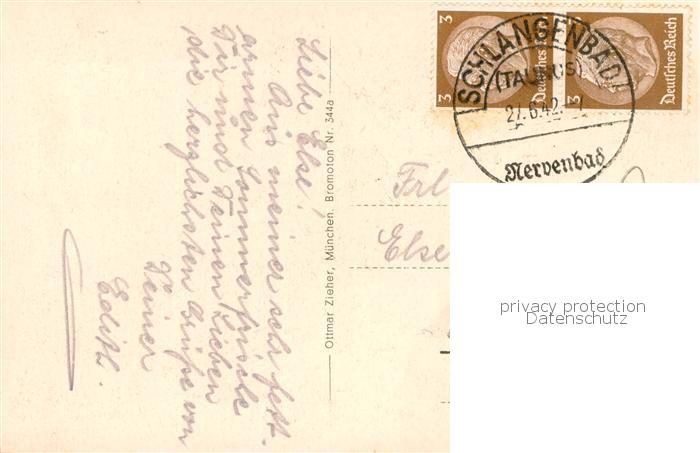 Liebe Else!
Aus meiner sehr
armen Sommerfrische
Dir und Deinen Lieben
die herzlichsten Grüße von
Deiner
Edith.
Ottmar Zieher, München. Bromoton Nr. 344a
3
Deutsches Reich
3
Deutsches Reich
SCHLANGENBAD
(TAUNUS)
27.6.42.
Nervenbad
Frl
Else
privacy protection
Datenschutz